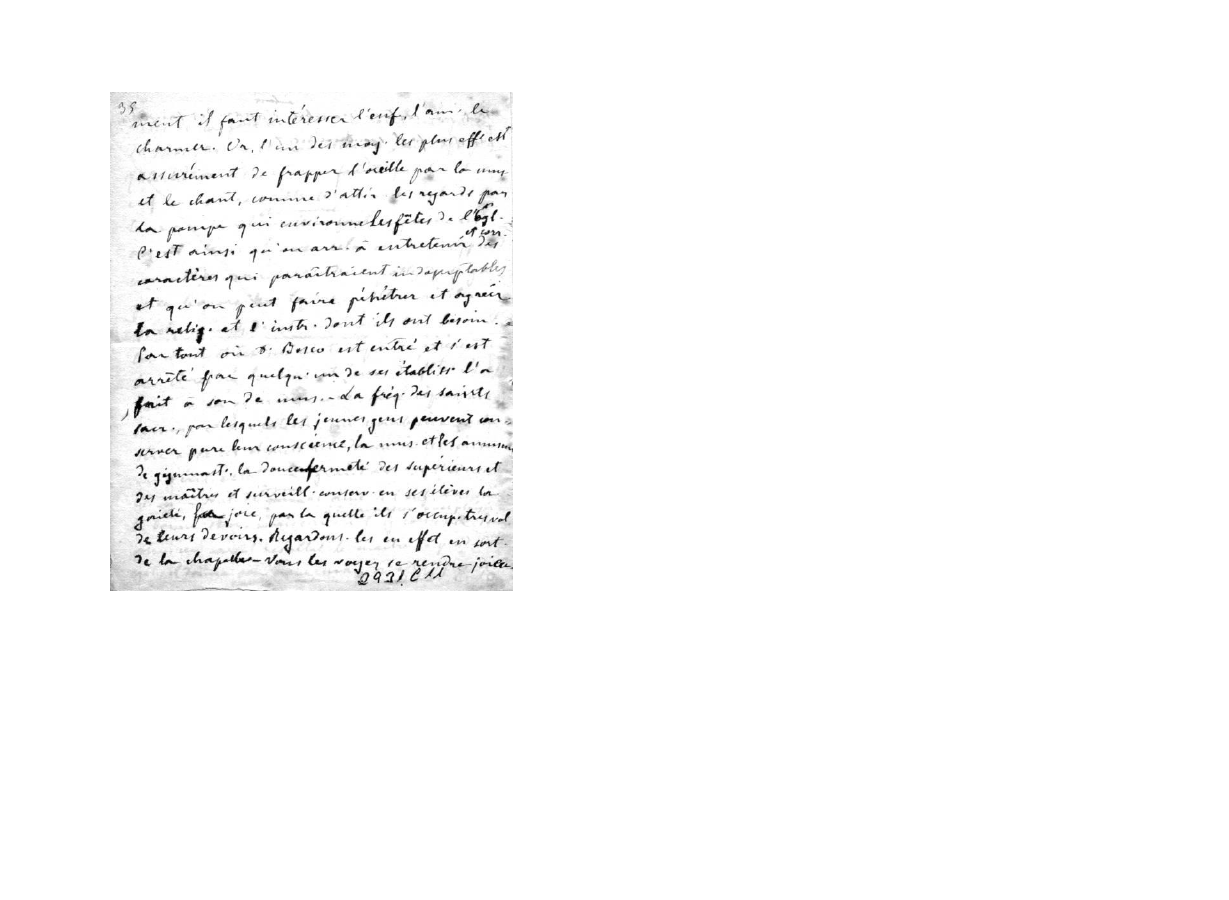 35
ment il faut intéresser l'enf, l'am. le
charmer. Or, l'un des moy. les plus eff. est
assurément de frapper l'oreille par la mus
et le chant, comme d'attir. les regards par
la pompe qui environne les fêtes de l'Egl.
et corr.
C'est ainsi qu'on arr. à entretenir des
caractères qui paraîtraient indomptables
et qu'on peut faire pénétrer et agréer
la relig. et l'instr. dont ils ont besoin.
Partout où D. Bosco est entré et s'est
arrêté par quelqu'un de ses établiss. l'a
fait à son de mus. - La fréq. des saints
sacr., par lesquels les jeunes gens peuvent con-
server pure leur conscience, la mus. et les amusem
de gymnast., la douce fermeté des supérieurs et
des maîtres et surveill. conserv. en ses élèves la
gaieté, joie, par la quelle ils s'occup. très vol
de leurs devoirs. Regardons-les en effet en sort.
de la chapelle - Vous les voyez se rendre joieu
2931 C 11